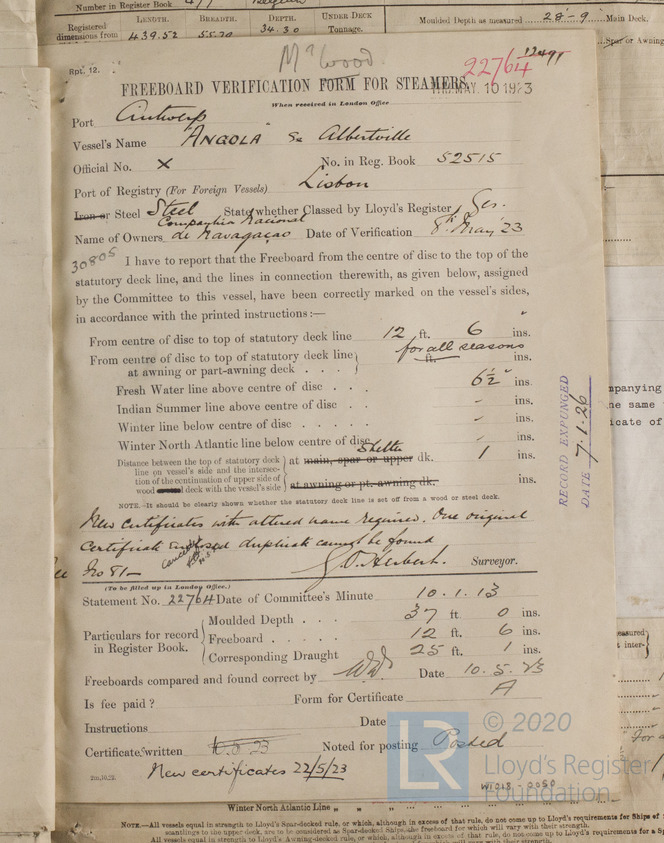 Number in Register Book
LENGTH. BREADTH. DEPTH. UNDER DECK Tonnage.
Registered dimensions from 439.52 55.70 34.30
Moulded Depth as measured 28-9 Main Deck.
Spar or Awning
Rpt. 12.
Mr Wood
22764
FREEBOARD VERIFICATION FORM FOR STEAMERS.
MAY. 10 1923
When received in London Office
Port Antwerp
Vessel's Name ANGOLA Ex Albertville
Official No. X No. in Reg. Book 52515
Port of Registry (For Foreign Vessels) Lisbon
Iron or Steel Steel State whether Classed by Lloyd's Register Yes.
Companhia Nacional
Name of Owners de Navagaçao Date of Verification 8th May '23
30805
I have to report that the Freeboard from the centre of disc to the top of the
statutory deck line, and the lines in connection therewith, as given below, assigned
by the Committee to this vessel, have been correctly marked on the vessel's sides,
in accordance with the printed instructions:—
From centre of disc to top of statutory deck line 12 ft. 6 ins.
for all seasons
From centre of disc to top of statutory deck line
at awning or part-awning deck . . . ft. ins.
Fresh Water line above centre of disc . . . 6½" ins.
Indian Summer line above centre of disc . . - ins.
Winter line below centre of disc . . . . . - ins.
Winter North Atlantic line below centre of disc - ins.
Shelter
Distance between the top of statutory deck
line on vessel's side and the intersec-
tion of the continuation of upper side of
wood deck with the vessel's side
at main, spar or upper dk. 1 ins.
at awning or pt. awning dk. ins.
NOTE.—It should be clearly shown whether the statutory deck line is set off from a wood or steel deck.
New certificates with altered name required. One original
certificate enclosed duplicate cannot be found
Surveyor.
(To be filled up in London Office.)
Statement No. 22764 Date of Committee's Minute 10.1.13
Particulars for record in Register Book.
Moulded Depth . . . 37 ft 0 ins.
Freeboard . . . . . 12 ft. 6 ins.
Corresponding Draught 25 ft. 1 ins.
Freeboards compared and found correct by Date 10.5.23
Is fee paid? Form for Certificate A
Instructions Date
Certificate written Noted for posting Posted
New certificates 22/5/23
7m,10,22.
RECORD EXPUNGED
DATE 7.1.26
mpanying
ne same
icate of
W1028-0050
LR
© 2020
Lloyd's Register
Foundation
Winter North Atlantic Line
NOTE.—All vessels equal in strength to Lloyd's Spar-decked rule, or which, although in excess of that rule, do not come up to Lloyd's requirements for Ships of
scantlings to the upper deck, are to be considered as Spar-decked Ships, the freeboard for which will vary with their strength.